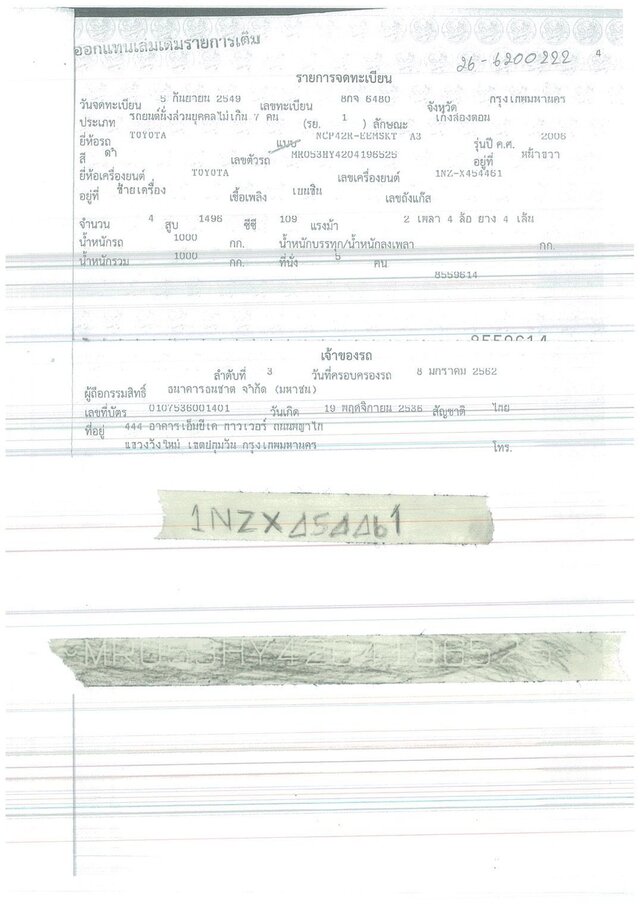 ออกแทนเล่มเดิมรายการเดิม
26-6200222 4
รายการจดทะเบียน
วันจดทะเบียน 5 กันยายน 2549 เลขทะเบียน 8กจ 6480 จังหวัด กรุงเทพมหานคร
ประเภท รถยนต์นั่งส่วนบุคคลไม่เกิน 7 คน (รย. 1 ) ลักษณะ เก๋งสองตอน
ยี่ห้อรถ TOYOTA แบบ NCP42R-EEMSKT A3 รุ่นปี ค.ศ. 2006
สี ดำ เลขตัวรถ MR053HY4204196525 อยู่ที่ หน้าขวา
ยี่ห้อเครื่องยนต์ TOYOTA เลขเครื่องยนต์ 1NZ-X454461
อยู่ที่ ซ้ายเครื่อง เชื้อเพลิง เบนซิน เลขถังแก๊ส
จำนวน 4 สูบ 1496 ซีซี 109 แรงม้า 2 เพลา 4 ล้อ ยาง 4 เส้น
น้ำหนักรถ 1000 กก. น้ำหนักบรรทุก/น้ำหนักลงเพลา กก.
น้ำหนักรวม 1000 กก. ที่นั่ง คน
8559614
8559614
เจ้าของรถ
ลำดับที่ 3 วันที่ครอบครองรถ 8 มกราคม 2562
ผู้ถือกรรมสิทธิ์ ธนาคารธนชาต จำกัด (มหาชน)
เลขที่บัตร 0107536001401 วันเกิด 19 พฤศจิกายน 2536 สัญชาติ ไทย
ที่อยู่ 444 อาคารเอ็มบีเค ทาวเวอร์ ถนนพญาไท
แขวงวังใหม่ เขตปทุมวัน กรุงเทพมหานคร โทร.
1NZX454461